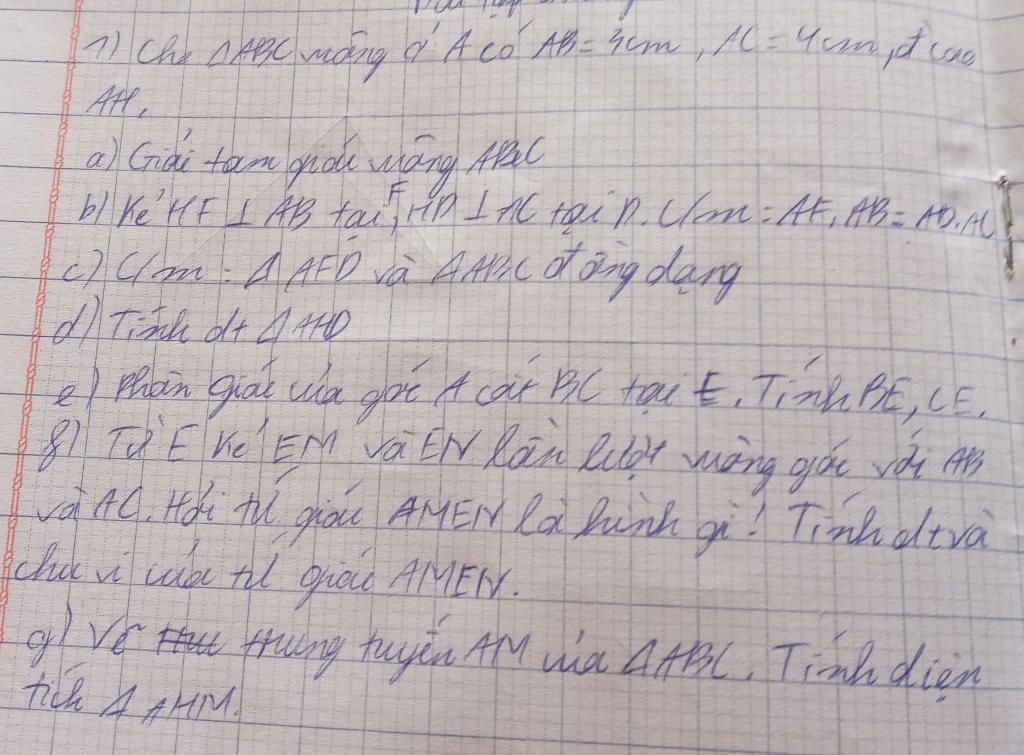 1) Cho ΔABC vuông ở A có AB = 3cm, AC = 4cm, đ cao
AH.
a) Giải tam giác vuông ABC
b) Kẻ HF ⊥ AB tại F, HD ⊥ AC tại D. C/m: AF.AB = AD.AC
c) C/m: Δ AFD và ΔABC đồng dạng
d) Tính dt Δ AHD
e) Phân giác của góc A cắt BC tại E. Tính BE, CE.
f) Từ E kẻ EM và EN lần lượt vuông góc với AB
và AC. Hỏi tứ giác AMEN là hình gì? Tính dt và
chu vi của tứ giác AMEN.
g) Vẽ trung tuyến AM của ΔABC. Tính diện
tích Δ AHM.